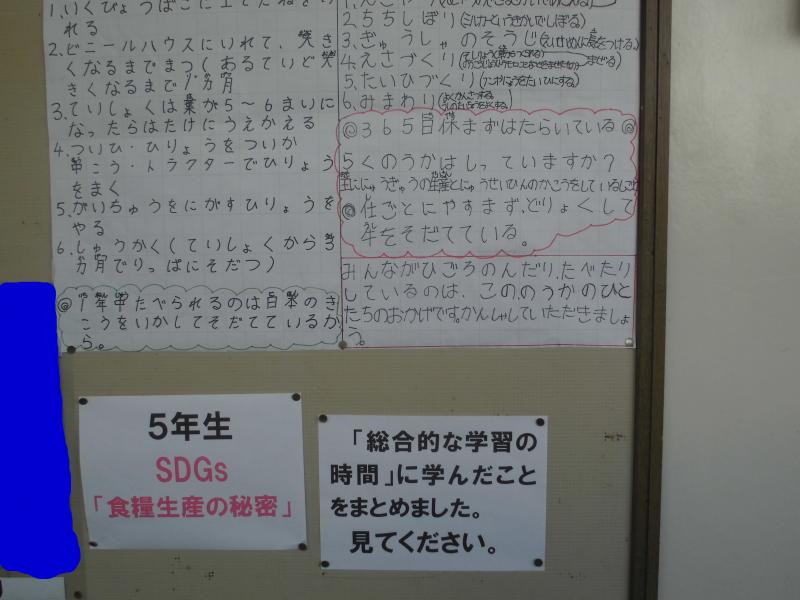 1.いくびょうばこに土とたねをい
れる
2.ビニールハウスにいれて、大き
くなるまでまつ(あるていど大
きくなるまで1カ月
3.ていしょくは葉が5～6まいに
なったらはたけにうえかえる
4.ついひ・ひりょうをついか
・トラクターでひりょう
をまく
5.がいちゅうをにがすひりょうを
やる
6.しゅうかく(ていしょくから3
カ月でりっぱにそだつ)
@1年中たべられるのは日本のき
こうをいかしてそだてているか
ら。
2.ちちしぼり(ミルカーというきかいでしぼる)
3.ぎゅうしゃのそうじ
4.えさづくり
5.たいひづくり
6.みまわり
@365日休まずはたらいている@
らくのうかはしっていますか?
主ににゅうぎゅうの生産とにゅうせいひんのかこうをしているしごと
@仕ごとにやすまず、どりょくして
牛をそだてている。
みんながひごろのんだり、たべたり
しているのは、この、のうかのひと
たちのおかげです。かんしゃしていただきましょ
う。
5年生
SDGs
「食糧生産の秘密」
「総合的な学習の
時間」に学んだこと
をまとめました。
見てください。